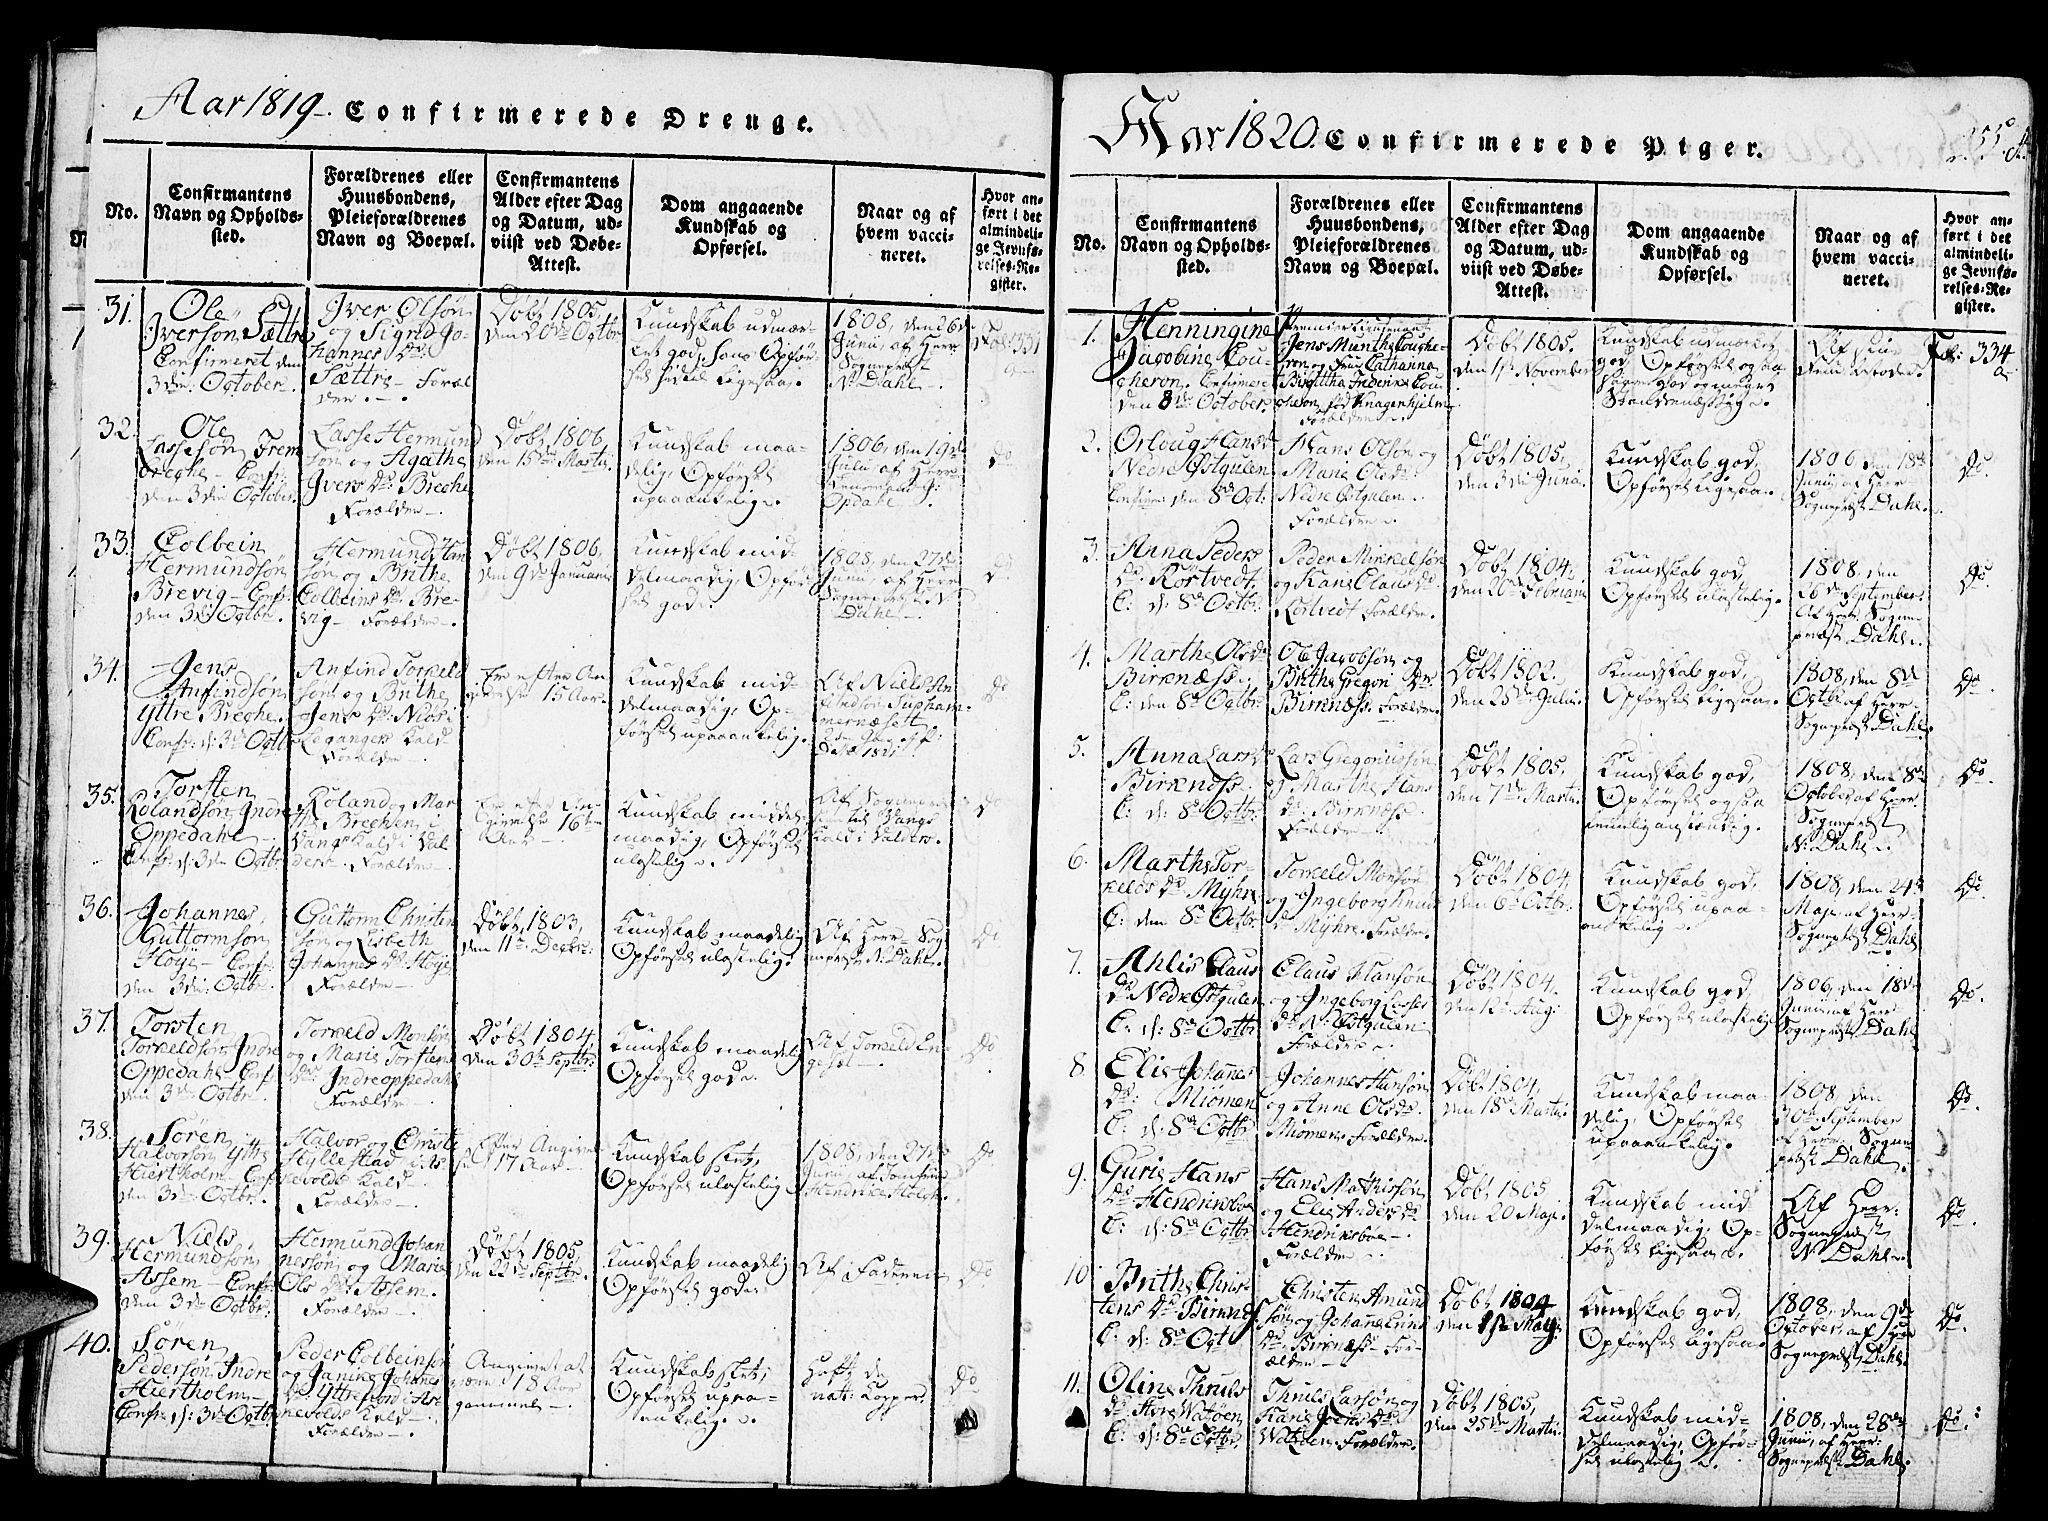 Aar 1819. Confirmerede Drenge.
No.
Confirmantens
Navn og Opholds-
sted.
Forældrenes eller
Huusbondens,
Pleieforældrenes
Navn og Boepæl.
Confirmantens
Alder efter Dag
og Datum, ud-
viist ved Døbe-
Attest.
Dom angaaende
Kundskab og
Opførsel.
Naar og af
hvem vacci-
neret.
Hvor an-
ført i det
almindeli-
ge Jevnfø-
relses-Re-
gister.
31.
Ole
Iversøn Sættre
Confirmeret den
3die October.
Iver Olsøn
og Sigrid Jo-
hannes Dr.
Sættre Foræl
dre.
Døbt 1805,
den 20de Octbr
Kundskab udmær-
ket god, hans Opfør-
sel ligesaa.
1808, den 26de
Junii, af Herr
Sognepræst
N. Dahl.
Fol: 331
a
32.
Ole
Lassesøn Frem
breche Conf:
den 3die October.
Lasse Hermund
søn og Agathe
Ivers Dr. Breche
Forældre.
Døbt 1806,
den 15de Martii
Kundskab maa-
delig, Opførsel
upaaankelig.
1806, den 19de
Julii af Herr
Opdahl.
Do
33.
Colbein
Hermundsøn
Brevig Conf:
den 3die Octbr.
Hermund Han
søn og Brithe
Colbeins Dr. Bre-
vig Forældre.
Døbt 1806,
den 9de Januarii
Kundskab mid-
delmaadig, Opfør
sel god.
1808, den 27de
Junii, af Herr
Sognepræst N
Dahl.
Do
34.
Jens
Anfindsøn
Yttre Breche.
Conf: d: 3die Octbr
Anfind Torkeld
søn og Brithe
Jens Dr. Niøs i
Leganger Kald
Forældre
Er efter An
givelse 15 Aar.
Kundskab mid-
delmaadig, Op-
førsel upaaankelig.
Af Niels An
Do
35.
Torsten
Rolandsøn Indre
Oppedahl
Conf: d: 3die Octbr.
Roland og Mar
the Brechen i
Vangs Kald i Val
ders. Forældre.
Er efter An-
givelse 16
Aar.
Kundskab middel
maadig, Opførsel
ulastelig.
Vangs
Kald i Valders.
Do
36.
Johannes
Guttormsøn
Høije Conf:
den 3die Octbr.
Guttorm Christen
søn og Lisbeth
Johannes Dr. Høije
Forældre
Døbt, 1803,
den 11te Decbr:
Kundskab maadelig
Opførsel ulastelig.
Af Herr Sog
nepræst N. Dahl.
Do
37.
Torsten
Torkeldsøn Indre
Oppedahl Conf:
den 3die Octbr.
Torkeld Monsøn
og Marie Torstens
Dr. Indre oppedahl
Forældre
Døbt 1804,
den 30te Septbr:
Kundskab maadelig
Opførsel god.
Af Torkeld En
gesæt
Do
38.
Søren
Halvorsøn Yttre
Hiertholm Conf
den 3die Octbr.
Halvor og Christi
Hyllestad i As
kevolds Kald
Forældre
Efter Angivel
se 17 Aar
Kundskab slet,
Opførsel ulastelig
1808, den 27de
Junii af Jomfrue
Hendrike Holck.
Do
39.
Niels
Hermundsøn
Assem Conf:
den 3die Octbr:
Hermund Johan
nessøn og Marie
Ols Dr. Assem.
Forældre
Døbt 1805,
den 22de Septbr.
Kundskab maadelig
Opførsel god.
Af Faderen
Do
40.
Søren
Pedersøn Indre
Hiertholm
Conf: d: 3die Octbr
Peder Colbeinsøn
og Janike Johanes
Dr. Yttrefiord i As
kevolds Kald
Forældre
Angivet at
være 18 Aar
gammel
Kundskab slet,
Opførsel upaa-
ankelig.
Haft de
nat: Kopper
Do
Aar 1820. Confirmerede Piger.
255.
No.
Confirmantens
Navn og Opholds-
sted.
Forældrenes eller
Huusbondens,
Pleieforældrenes
Navn og Boepæl.
Confirmantens
Alder efter Dag
og Datum, ud-
viist ved Døbe-
Attest.
Dom angaaende
Kundskab og
Opførsel.
Naar og af
hvem vacci-
neret.
Hvor an-
ført i det
almindeli-
ge Jevnfø-
relses-Re-
gister.
1.
Henningine
Jacobine Cou-
cheron. Confirmeret
den 8de October.
Premier Lieutenant
Jens Munthe Couche-
ron og Frue Cathanna
Birgittha Frederike Cou
cheron, fød Knagenhjelm
Forældre
Døbt 1805.
den 1ste November
Kundskab udmærket
god, Opførsel og saa
god og meget
Fol: 334
a
2.
Orloug Hans Dr
Nedre Østgulen
Confir: den 8de Oct:
Hans Olsøn og
Marie Ols Dr.
Nedre Østgulen
Forældre.
Døbt 1805,
den 3die Junii
Kundskab god,
Opførsel ligesaa.
1806 den 18de
Junii, af Herr
Sognepræst Dahl.
Do
3.
Anna Peders
Dr. Rørtvedt
C: d: 8de Octbr.
Peder Minkelsøn
og Kari Claus Dr.
Rørtvedt Forældre.
Døbt 1804.
den 26de Februarii
Kundskab god,
Opførsel ulastelig.
1808, den
26de September.
Af Herr Sogne-
præst Dahl.
Do
4.
Marthe Ols Dr
Birknæss.
C: den 8de Octbr.
Ole Jacobsøn og
Brithe Gregori Dr.
Birknæss. Forældre.
Døbt 1802.
den 25de Julii.
Kundskab god,
Opførsel ligesaa.
1808, den 8de
Octbr af Herr
Sognepræst Dahl.
Do.
5.
Anna Lars Dr
Birknæss
C: d: 8de Octbr.
Lars Gregoriussøn
og Marthe Hans
Dr. Birknæss
Forældre
Døbt 1805.
den 7de Martii.
Kundskab god,
Opførsel ogsaa
temmelig anstændig.
1808, den 8de
October, af Herr
Sognepræst
N. Dahl.
Do.
6.
Marthe Tor-
kelds Dr. Myhre
C: den 8de Octbr.
Torkeld Monsøn
og Ingeborg Knud
Dr. Myhre. Forældre.
Døbt 1804,
den 6te Octbr:
Kundskab god,
Opførsel upaa-
ankelig.
1808, den 24de
Maji, af Herr
Sognepræst Dahl
Do.
7.
Ahlis Claus
Dr Nedre Østgulen
C: d: 8de Octbr.
Claus Hansøn
og Ingeborg Lasses
Dr. N: Østgulen
Forældre.
Døbt 1804.
den 12te Aug:
Kundskab god,
Opførsel ulastelig
1806, den 18de
Junii af Herr
Sognepræst Dahl
Do.
8.
Elie Johanes
Dr: Miømen
C: d: 8de Octbr
Johannes Hansøn
og Anne Ols Dr.
Miømen. Forældre.
Døbt 1804.
den 18de Martii
Kundskab maa-
delig, Opførsel
upaaankelig.
1808, den
30te September
af Herr Sogne-
præst Dahl.
Do.
9.
Gurie Hans
Dr Hendriksboe
C: d: 8de Octbr.
Hans Mathissøn
og Elie Anders Dr
Hendriksboe
Forældre
Døbt 1805
den 20 Maji.
Kundskab mid-
delmaadig, Op-
førsel ligesaa.
Af Herr:
Sognepræst
N. Dahl.
Do.
10.
Brithe Chris-
tens Dr. Birknæs.
C: d: 8de Octb
Christen Amund
søn og Johane Lars
Dr. Birknæss For-
ældre
Døbt 1804
den 1ste Maij:
Kundskab god,
Opførsel ligesaa.
1808, den 9de
October, af Herr
Sognepræst Dahl.
Do.
11.
Oline Thruls
Dr. Store Watøen
C: d: 8de Octbr.
Thruls Larsøn og
Karie Joens Dr.
Watøen Forældre.
Døbt 1805,
den 25de Martii.
Kundskab mid-
delmaadig, Opfør-
sel ulastelig.
1808, den 28de
Junii, af Herr:
Sognepræst Dahl.
Do.